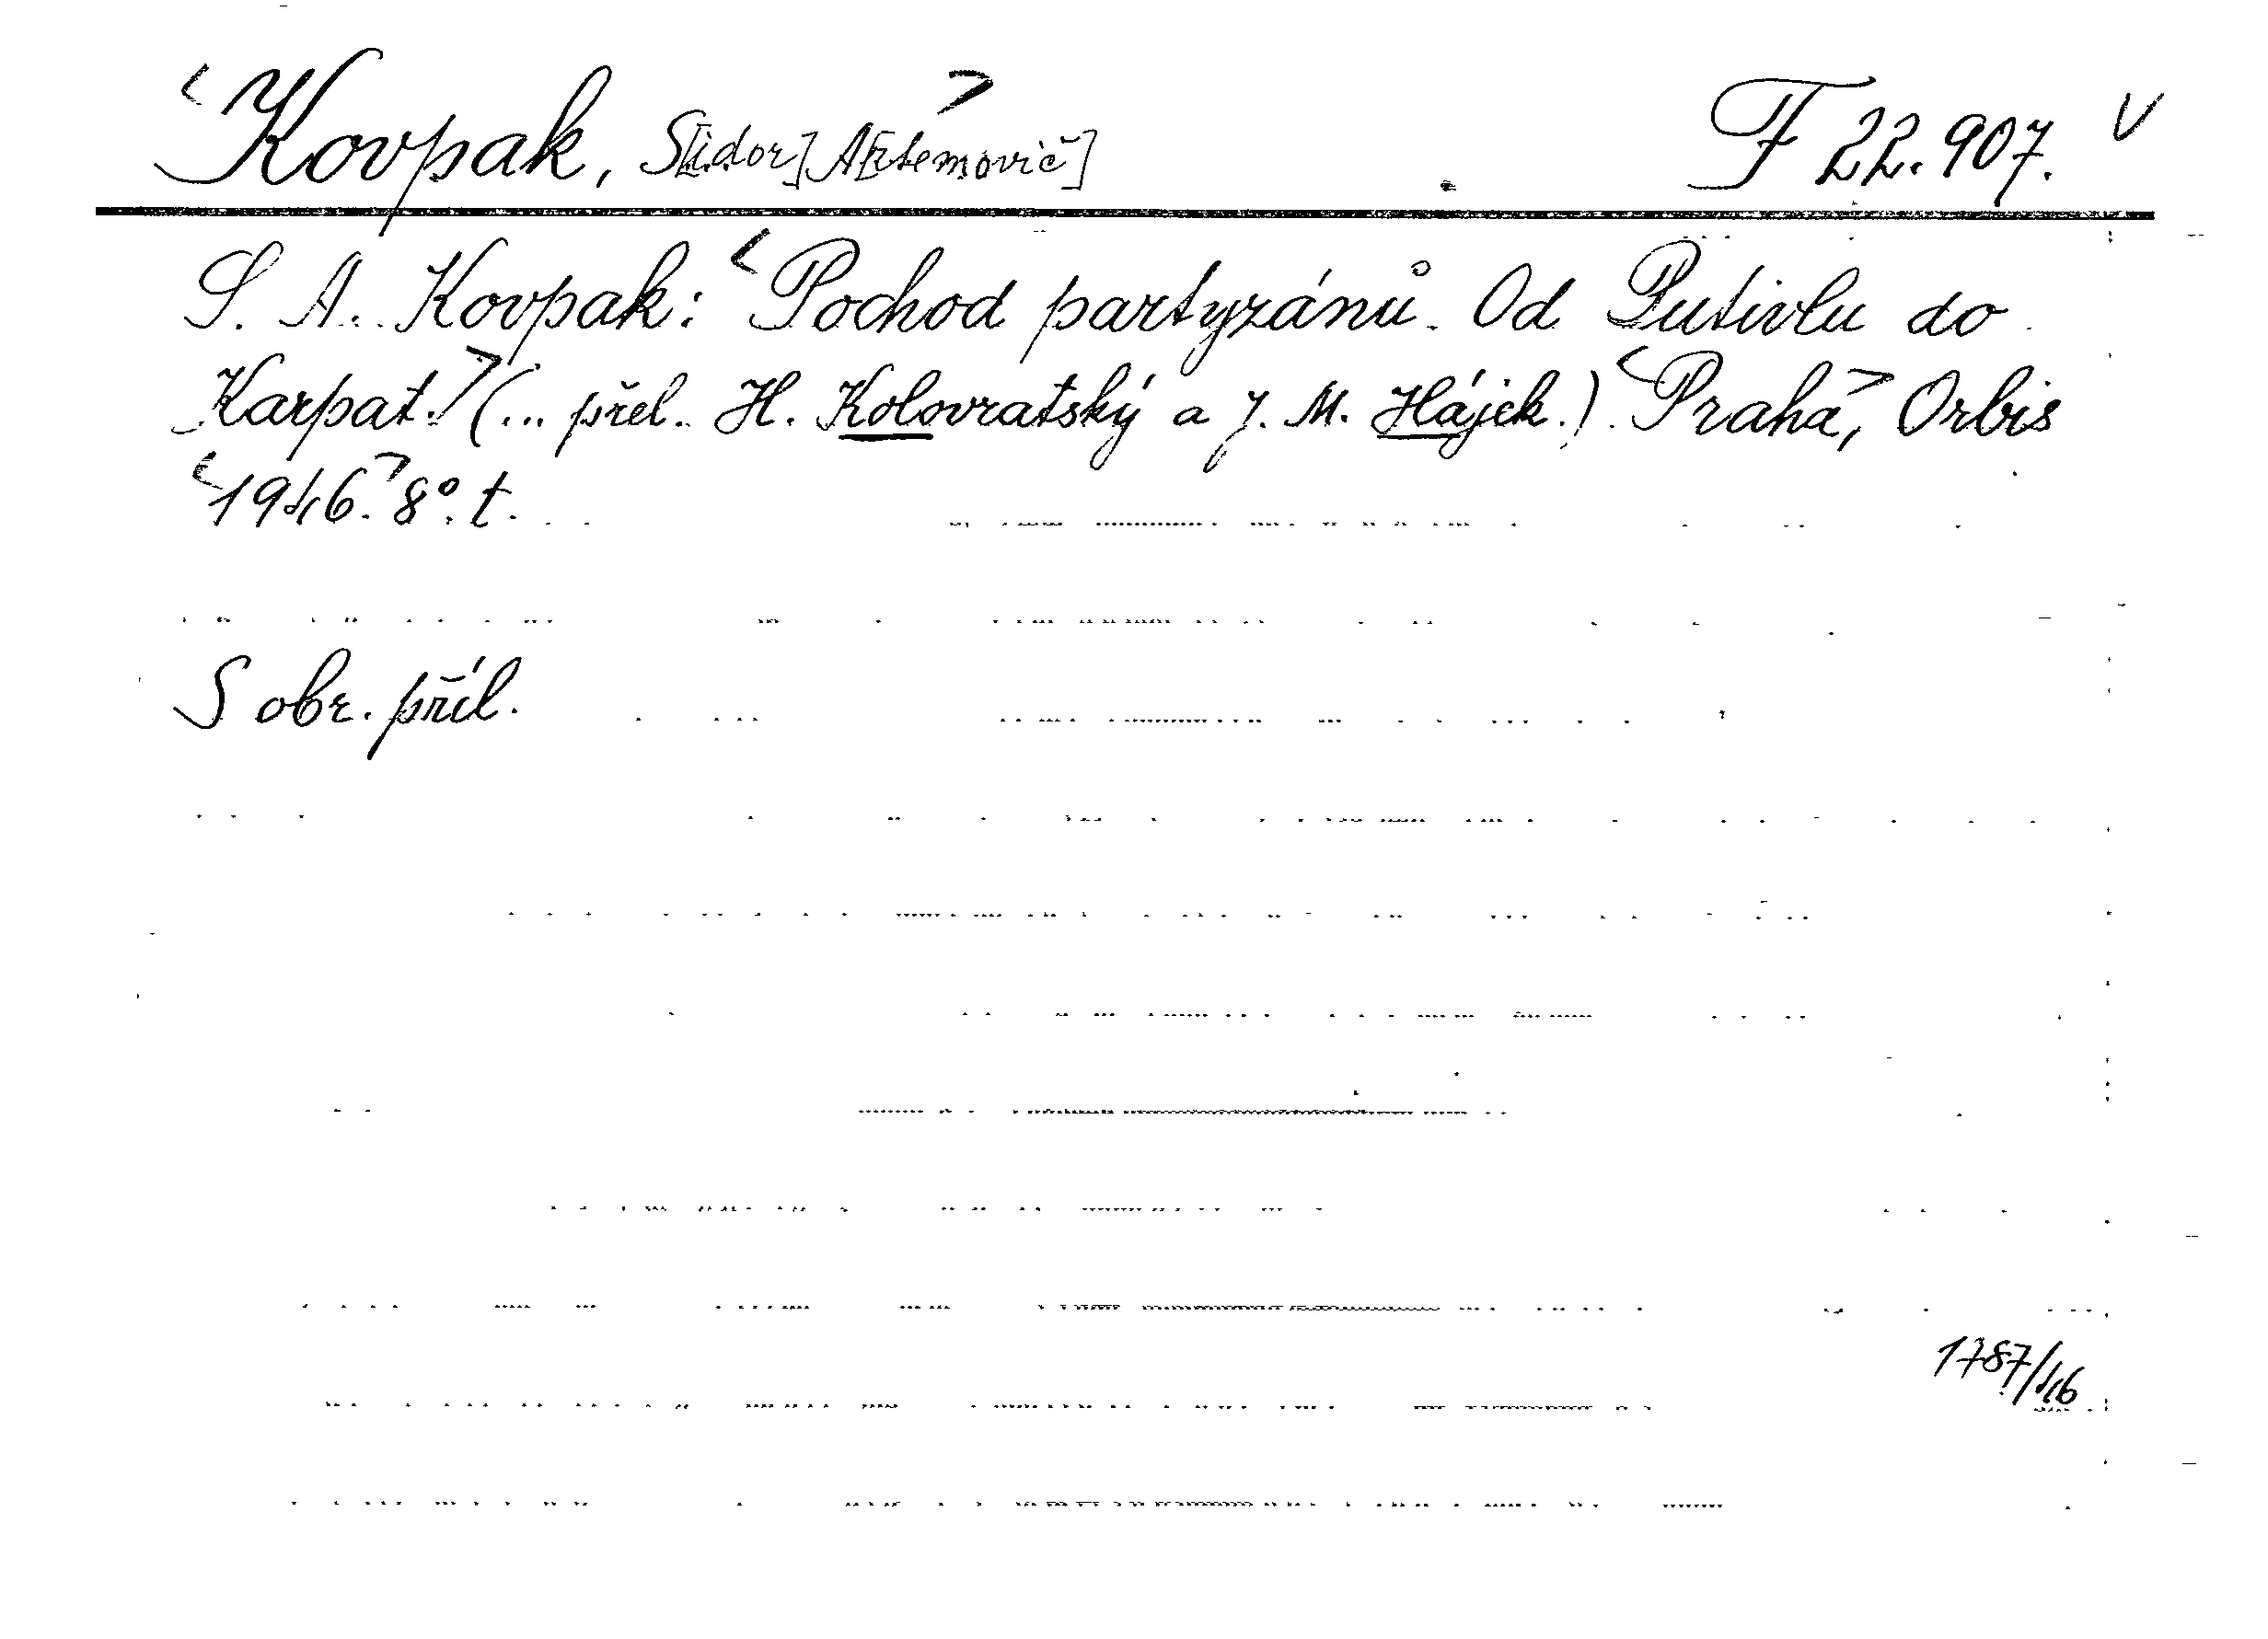 <Kovpak, S[idor] A[rtemovič]> F 22.907. V
S. A. Kovpak: <Pochod partyzánů. Od Putivlu do
Karpat.> (... přel. H. Kolovratský a J. M. Hájek.) <Praha>, Orbis
<1946.> 8°. t.
S obr. příl.
1787/46